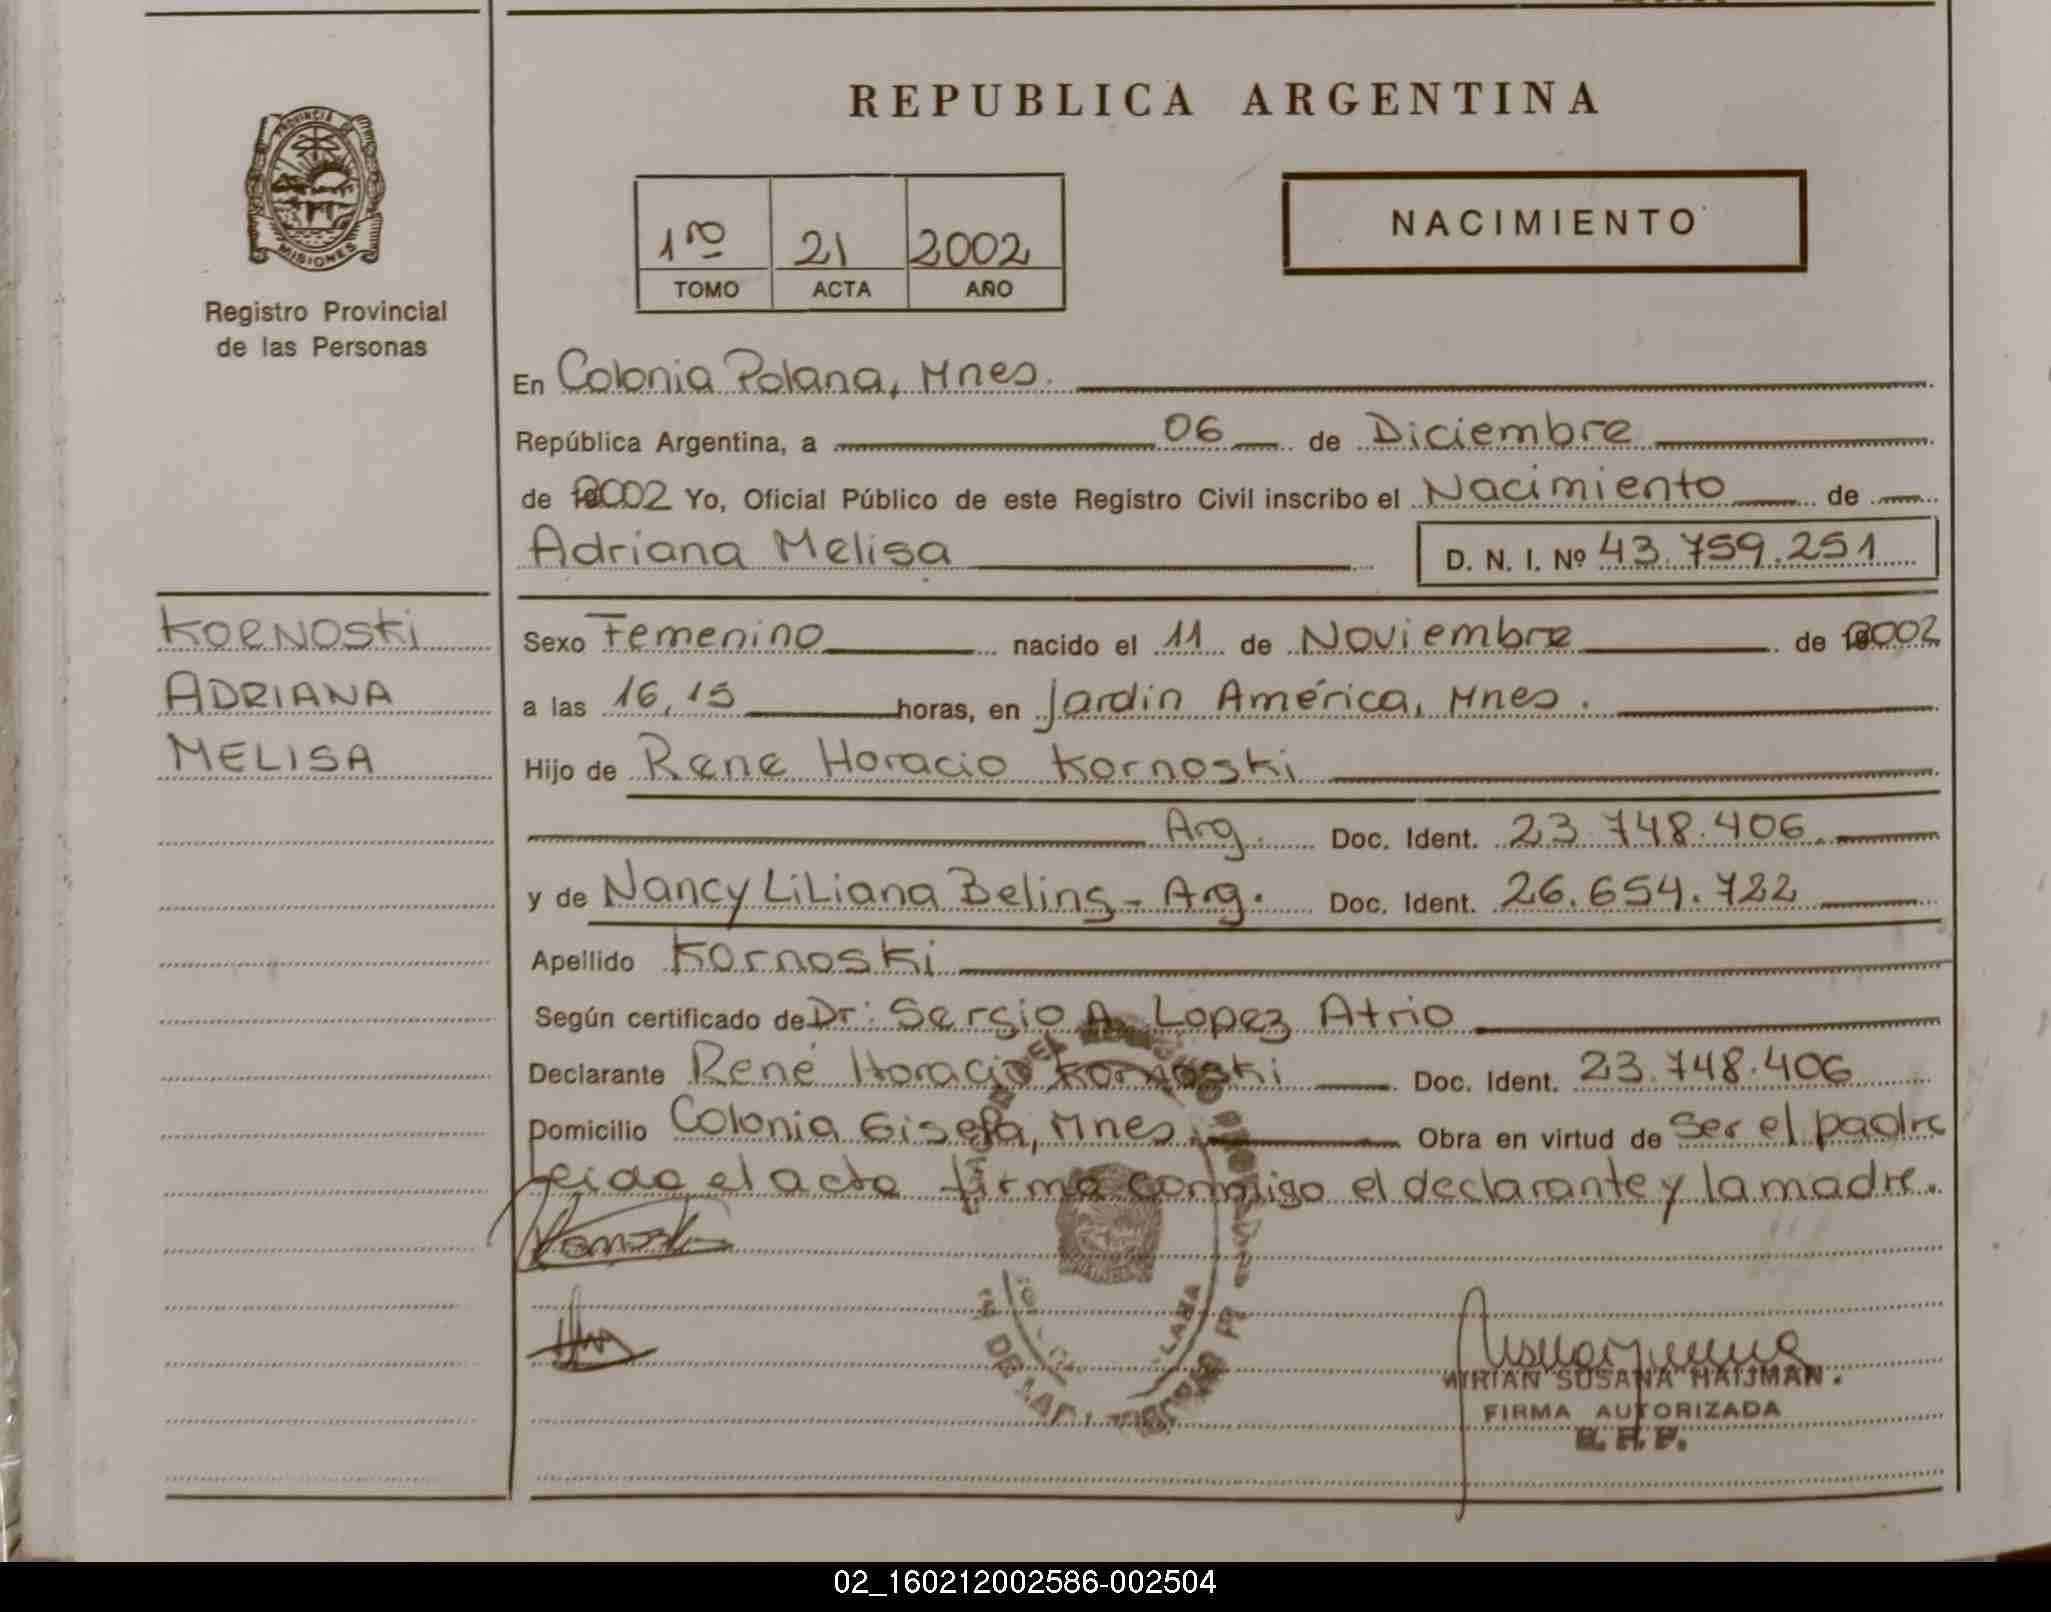 REPUBLICA ARGENTINA
PROVINCIA
MISIONES
Registro Provincial
de las Personas
1ro 21 2002
TOMO ACTA AÑO
NACIMIENTO
En Colonia Polana, Mnes.
República Argentina, a 06 de Diciembre
de 2002 Yo, Oficial Público de este Registro Civil inscribo el Nacimiento de
Adriana Melisa D. N. I. Nº 43.759.251
KORNOSKI
ADRIANA
MELISA
Sexo Femenino nacido el 11 de Noviembre de 2002
a las 16,15 horas, en Jardin América, Mnes.
Hijo de Rene Horacio Kornoski
Arg. Doc. Ident. 23.748.406
y de Nancy Liliana Belins - Arg. Doc. Ident. 26.654.722
Apellido Kornoski
Según certificado de Dr: Sergio A. Lopez Atrio
Declarante René Horacio Kornoski Doc. Ident. 23.748.406
Domicilio Colonia Gisela, Mnes. Obra en virtud de Ser el padre
Leida el acta firma conmigo el declarante y la madre.
MIRIAN SUSANA HAIJMAN.
FIRMA AUTORIZADA
02_160212002586-002504